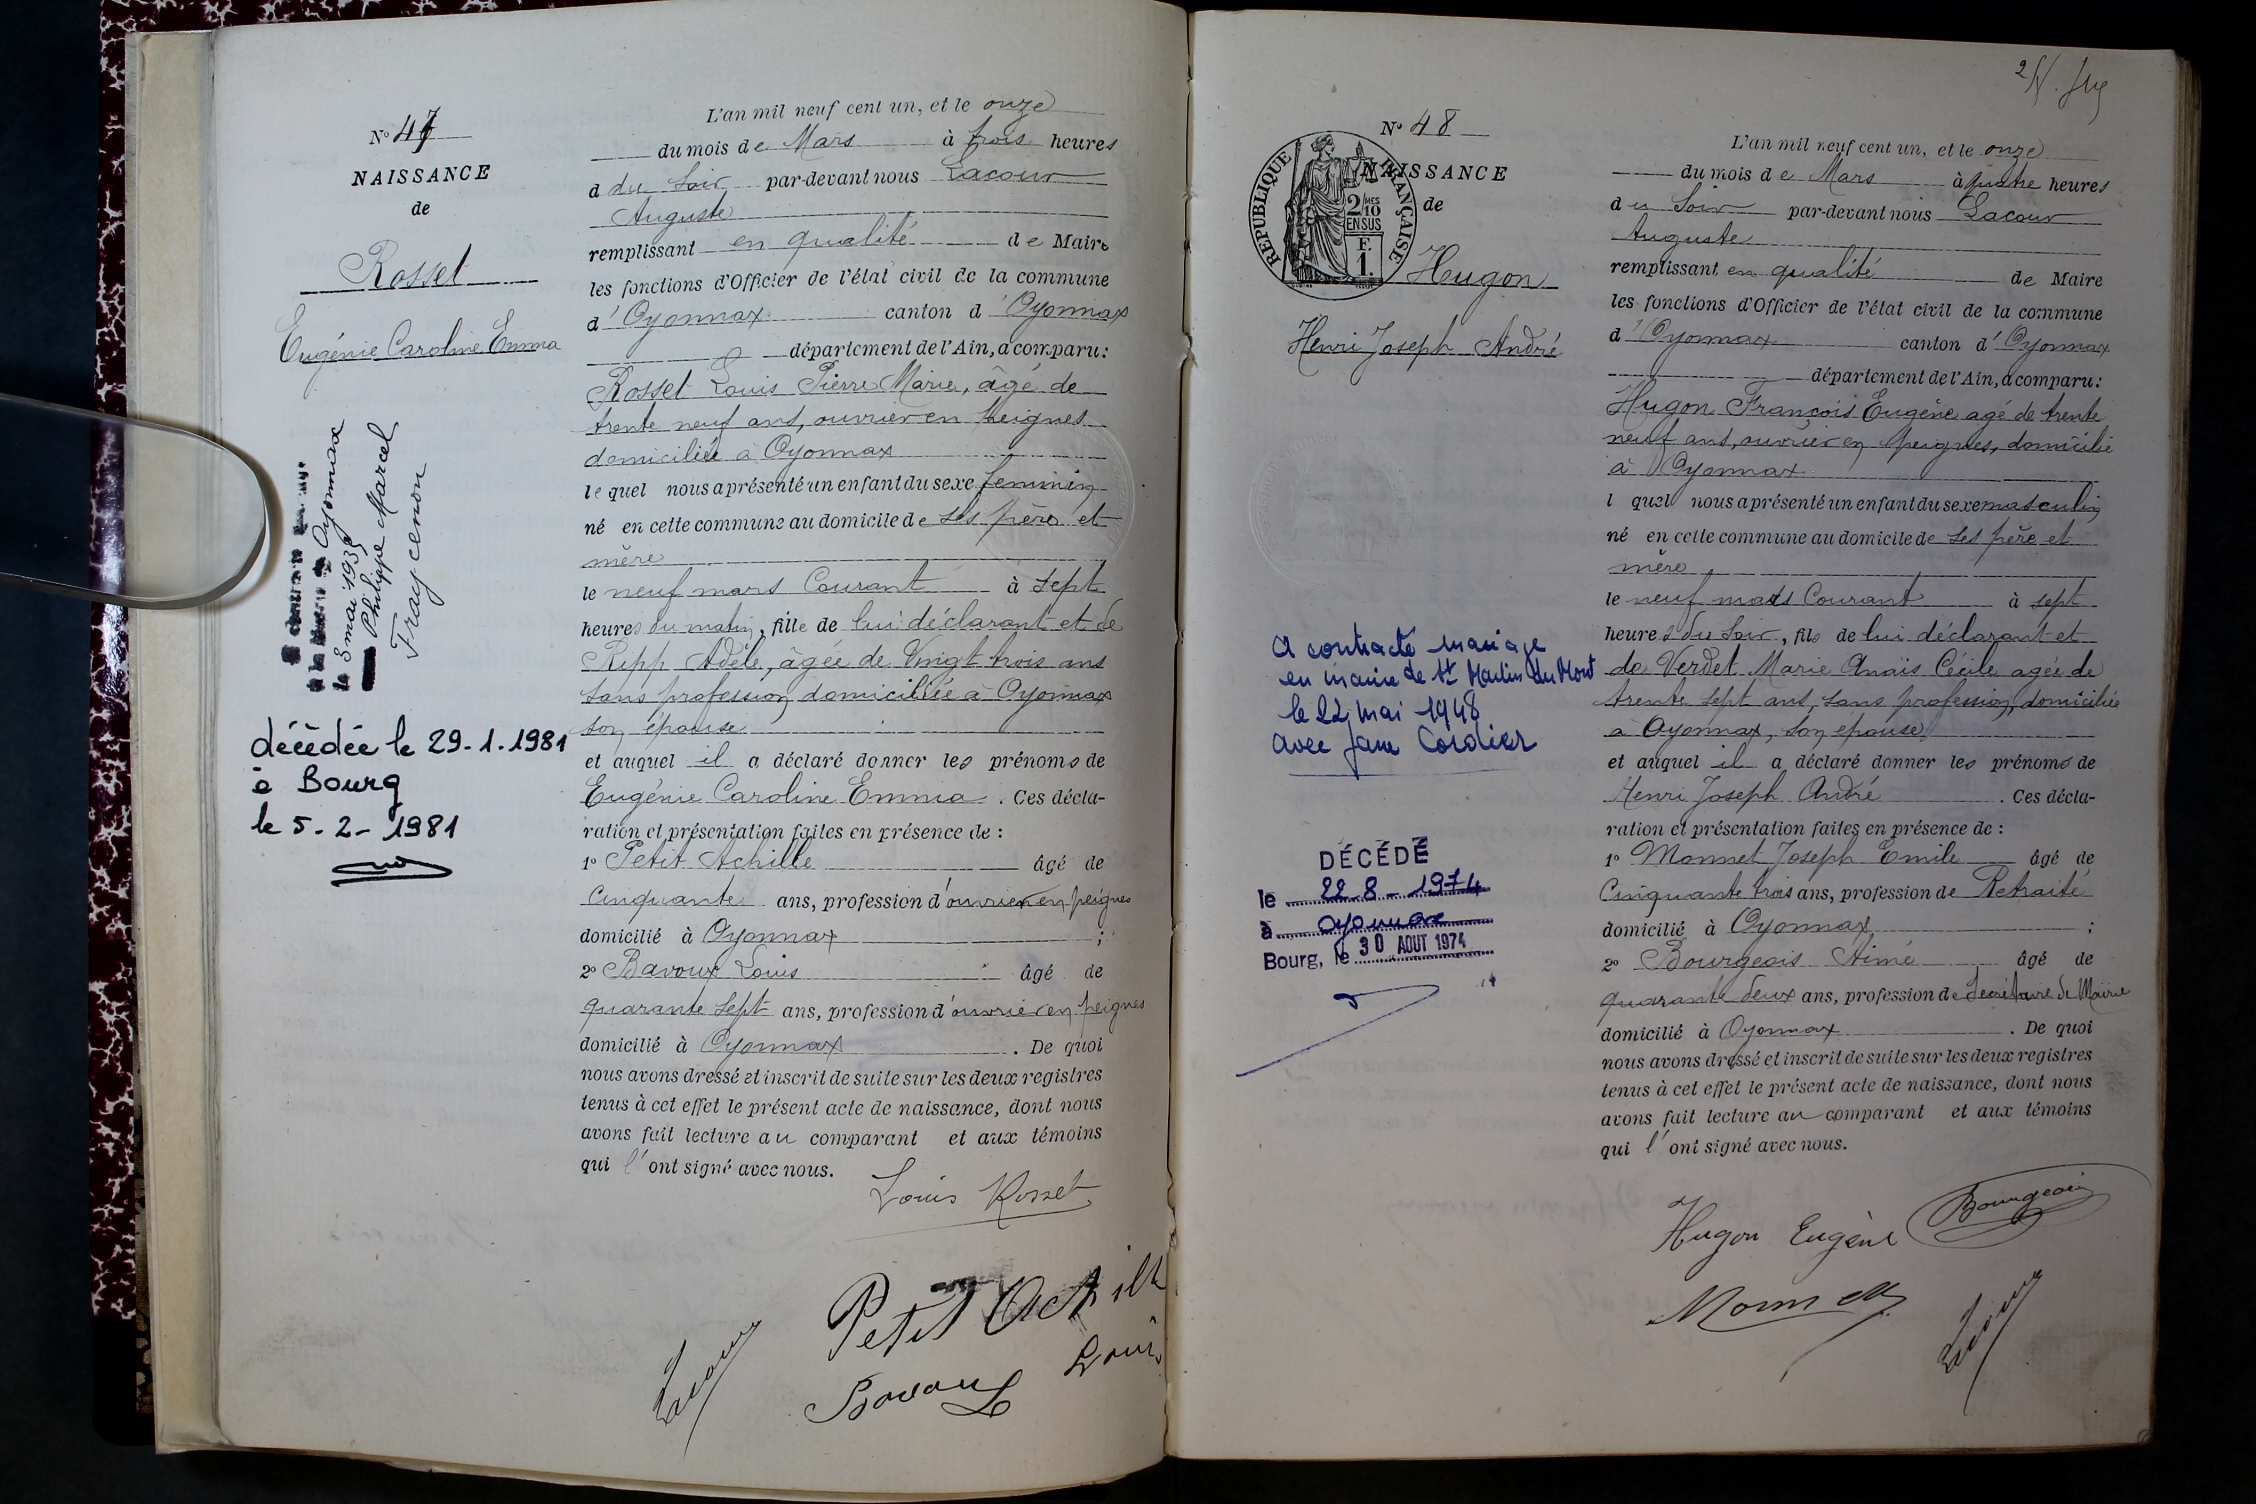 N° 47
NAISSANCE
de
Rosset
Eugénie Caroline Emma
à la Mairie de Oyonnax
le 3 mai 1935
Philippe Marcel
décédée le 29-1.1981
à Bourg
le 5-2-1981
L'an mil neuf cent un, et le onze
du mois de Mars à trois heures
d du Soir par-devant nous Lacour
Auguste
remplissant en qualité de Maire
les fonctions d'Officier de l'état civil de la commune
d'Oyonnax canton d'Oyonnax
département de l'Ain, a comparu:
Rosset Louis Pierre Marie, âgé de
trente neuf ans, ouvrier en Peignes
domicilié à Oyonnax
lequel nous a présenté un enfant du sexe feminin
né en cette commune au domicile de ses père et
mère
le neuf mars Courant à sept
heures du matin, fille de lui déclarant et de
Ripp Adèle, âgée de Vingt trois ans
sans profession, domiciliée à Oyonnax
son épouse
et auquel il a déclaré donner les prénoms de
Eugénie Caroline Emma. Ces décla-
ration et présentation faites en présence de :
1° Petit Achille âgé de
Cinquante ans, profession d'ouvrier en peignes
domicilié à Oyonnax ;
2° Bavoux Louis âgé de
quarante sept ans, profession d'ouvrier en peignes
domicilié à Oyonnax. De quoi
nous avons dressé et inscrit de suite sur les deux registres
tenus à cet effet le présent acte de naissance, dont nous
avons fait lecture au comparant et aux témoins
qui l'ont signé avec nous.
Louis Rosset
Petit Achille
Lacour
Bavoux Louis
N° 48
NAISSANCE
de
RÉPUBLIQUE FRANÇAISE
2 MES
10
EN SUS
F.
1.
Hugon
Henri Joseph André
A contracté mariage
en mairie de St Martin du Mont
le 22 mai 1948
avec Jane Cordier
DÉCÉDÉ
le 22-8-1974
à Oyonnax
Bourg, le 30 AOUT 1974
L'an mil neuf cent un, et le onze
du mois de Mars à quatre heures
du Soir par-devant nous Lacour
Auguste
remplissant en qualité de Maire
les fonctions d'Officier de l'état civil de la commune
d'Oyonnax canton d'Oyonnax
département de l'Ain, a comparu:
Hugon François Eugène agé de trente
neuf ans, ouvrier en peignes, domicilié
à Oyonnax
l quel nous a présenté un enfant du sexe masculin
né en cette commune au domicile de ses père et
mère
le neuf mars Courant à sept
heures du Soir, fils de lui déclarant et
de Verdet Marie Anaïs Cécile agée de
trente sept ans, sans profession, domiciliée
à Oyonnax, son epouse
et auquel il a déclaré donner les prénoms de
Henri Joseph André. Ces décla-
ration et présentation faites en présence de :
1° Monnet Joseph Emile âgé de
Cinquante trois ans, profession de Retraité
domicilié à Oyonnax ;
2° Bourgeois Aimé âgé de
quarante deux ans, profession de Secrétaire de Mairie
domicilié à Oyonnax. De quoi
nous avons dressé et inscrit de suite sur les deux registres
tenus à cet effet le présent acte de naissance, dont nous
avons fait lecture au comparant et aux témoins
qui l'ont signé avec nous.
Hugon Eugène
Bourgeois
Monnet
Lacour